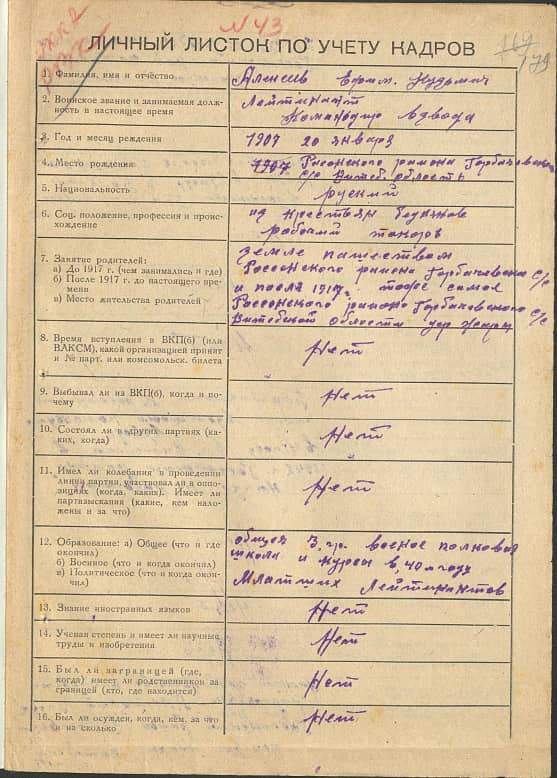 N 43
ЛИЧНЫЙ ЛИСТОК ПО УЧЕТУ КАДРОВ
179
1. Фамилия, имя и отчество
2. Воинское звание и занимаемая долж-
ность в настоящее время
Лейтинант
Командир взвода
3. Год и месяц рождения
1907 20 января
4. Место рождения
1907 Росонского района Горбачевского
с/с Витеб. область
5. Национальность
руский
6. Соц. положение, профессия и проис-
хождение
из крестьян бедняков
рабочий
7. Занятие родителей:
а) До 1917 г. (чем занимались и где)
б) После 1917 г. до настоящего вре-
мени
в) Место жительства родителей
земле пашеством
Россонского района Горбачевского с/с
и после 1917г. тоже самое
Россонского района Горбачевского с/с
Витебской области дер
8. Время вступления в ВКП(б) (или
ВЛКСМ), какой организацией принят
и № парт. или комсомольск. билета
Нет
9. Выбывал ли из ВКП(б), когда и по-
чему
Нет
10. Состоял ли в других партиях (ка-
ких, когда)
Нет
11. Имел ли колебания в проведении
линии партии, участвовал ли в оппо-
зициях (когда, каких). Имеет ли
партвзыскания (какие, кем нало-
жены и за что)
Нет
12. Образование: а) Общее (что и где
окончил)
б) Военное (что и когда окончил)
в) Политическое (что и когда окон-
чил)
общея 3 гр. военое полковая
школа и курсы в 40м году
Млатших Лейтинантов
13. Знание иностранных языков
Нет
14. Ученая степень и имеет ли научные
труды и изобретения
Нет
15. Был ли заграницей (где,
когда) имеет ли родственников за
границей (кто, где находится)
Нет
16. Был ли осужден, когда, кем, за что
и на сколько
Нет